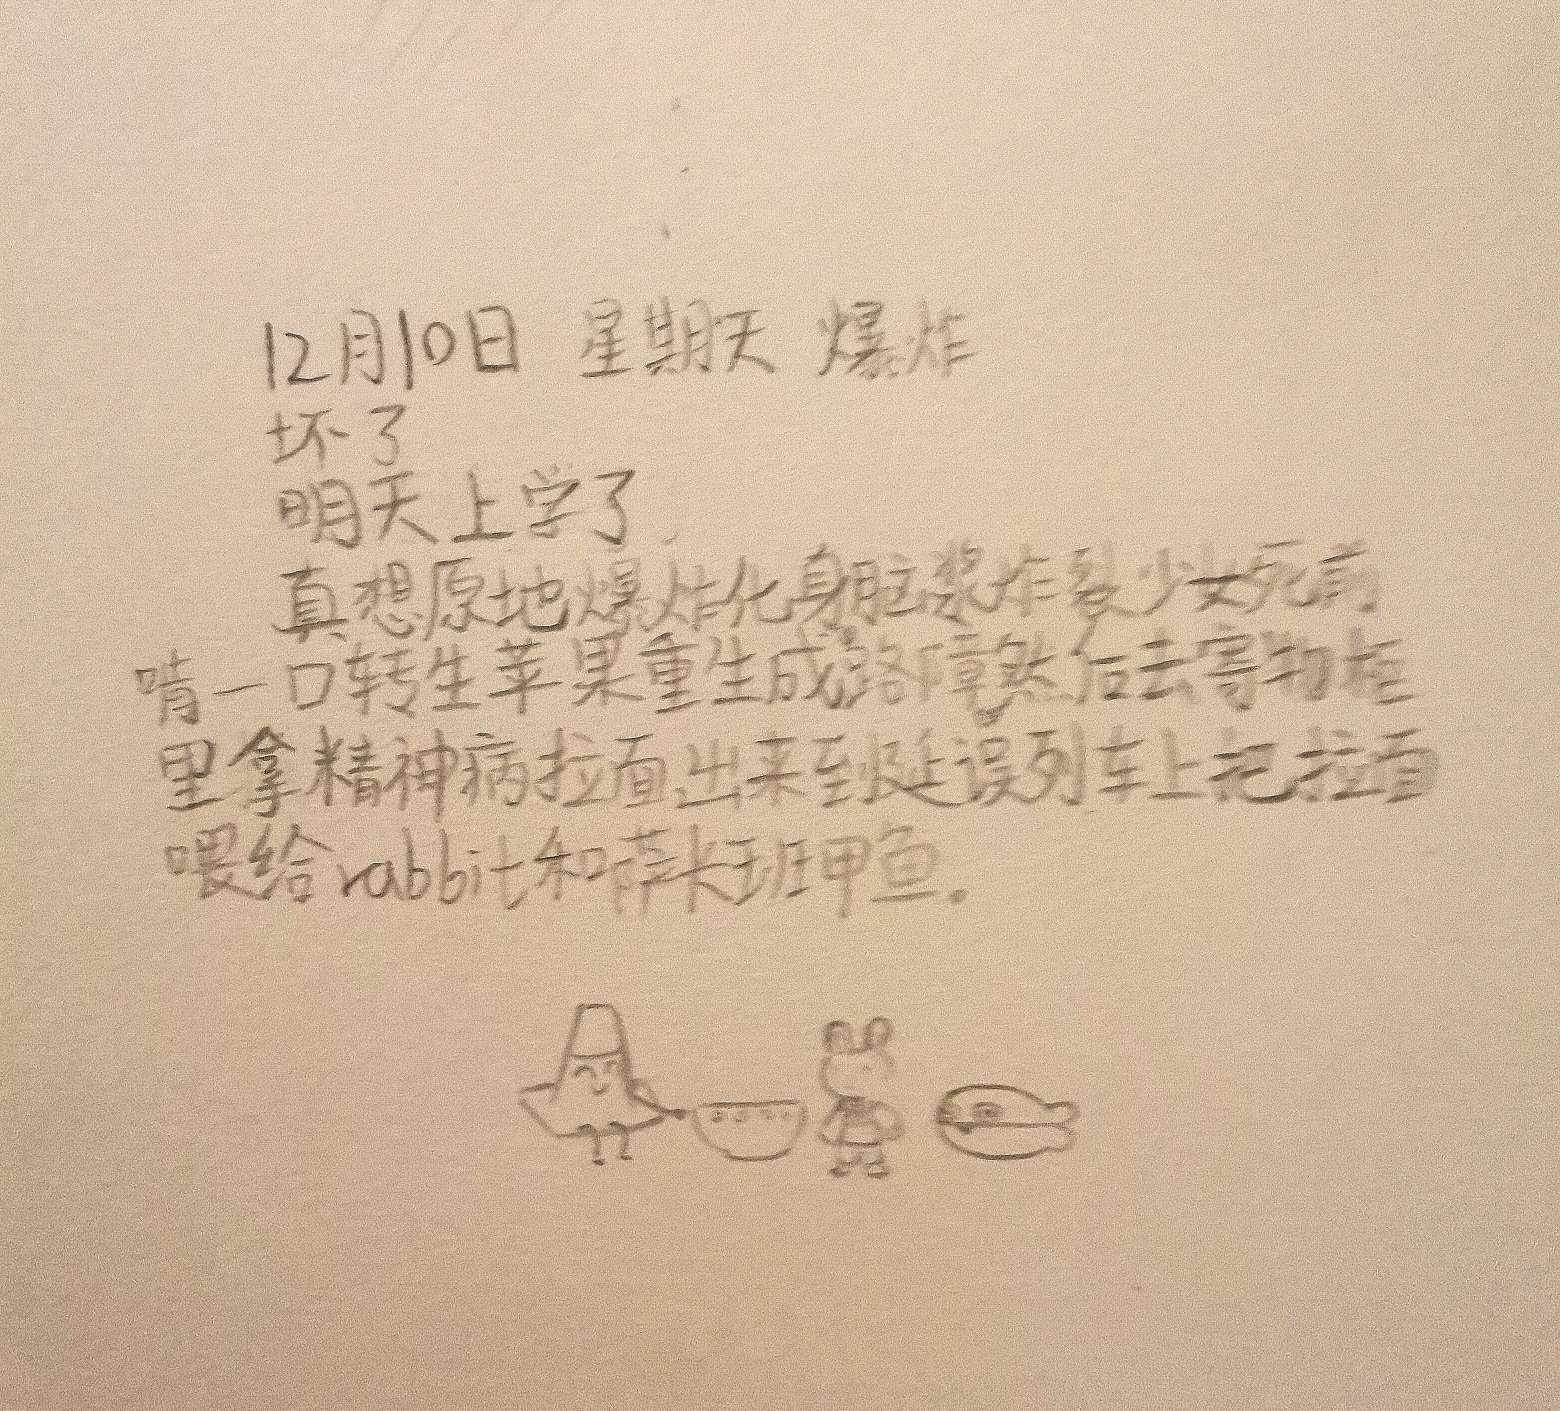 12月10日 星期天 爆炸
坏了
明天上学了
真想原地爆炸化身脑浆炸裂少女死前
啃一口转生苹果重生成路障然后去寄物柜
里拿精神病拉面出来到延误列车上把拉面
喂给rabbit和萨卡班甲鱼.